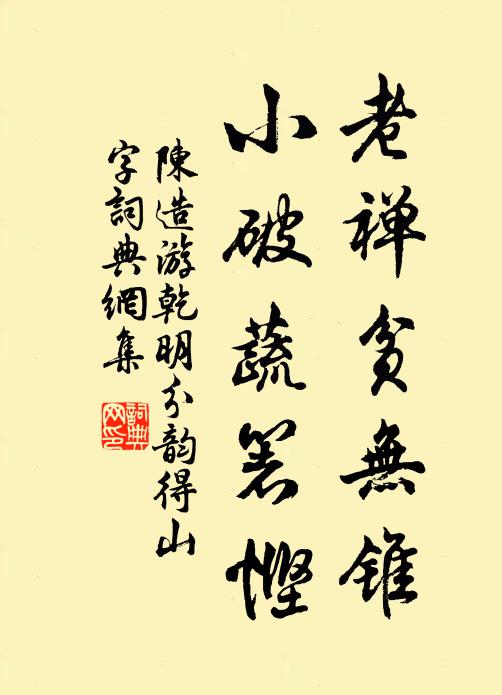 老禅貧無錐
小破蔬箸慳
陳造游乾明分韵得山
字詞典網集
詞典
网印